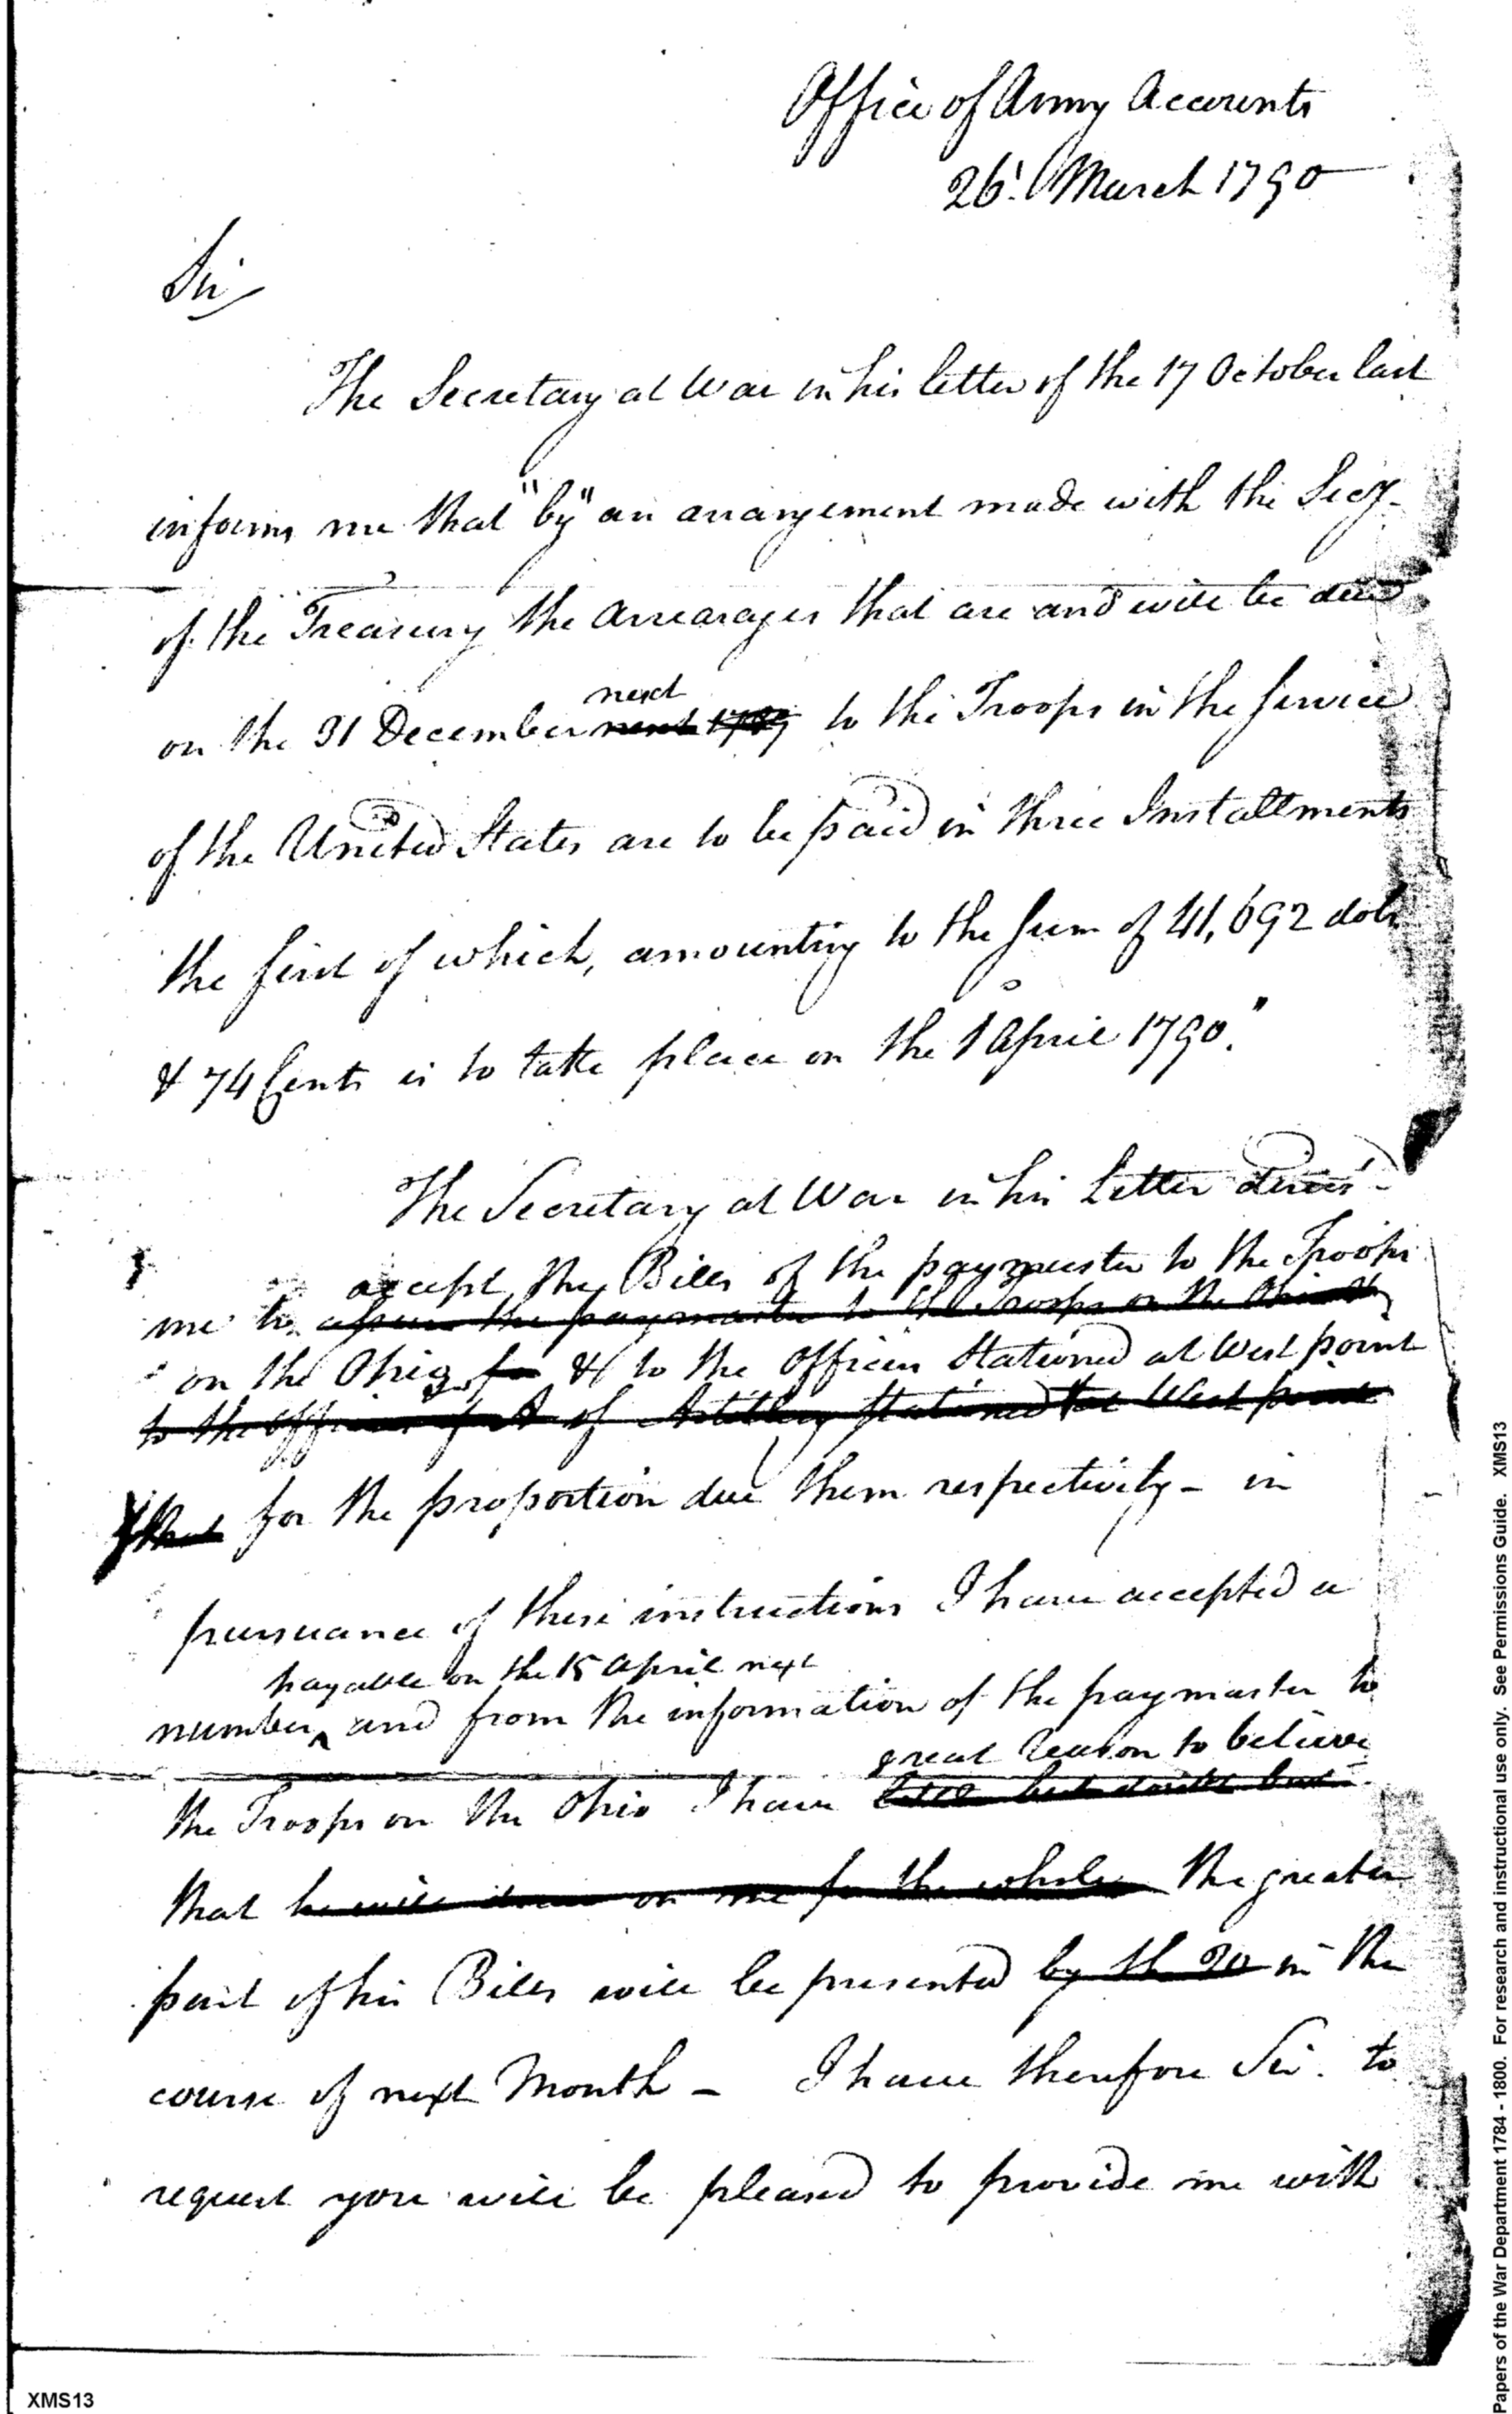 Office of Army Accounts
26' March 1790
Sir
The Secretary at War in his letter of the 17 October last
informs me that "by" an arrangement made with the Secy.
of the Treasury the Arrearages that are and will be due
next
on the 31 December next 1789 to the Troops in the Service
of the United States are to be paid in three Installments
the first of which, amounting to the Sum of 41,692 dols
& 74 Cents is to take place on the 1 April 1790."
The Secretary at War in his Letter directs
accept the Bills of the paymaster to the Troops
me to the paymaster to the Troops on the Ohio &
on the Ohio for & to the Officers Stationed at West point
to the Officers of Artillery stationed at West point
for the proportion due them respectively - in
pursuance of these instructions I have accepted a
payable on the 15 April next
number and from the information of the paymaster to
great reason to believe
the Troops on the Ohio I have little but doubt but
that he will draw on me for the whole the greater
part of his Bills will be presented by th 30 in the
course of next Month - I have therefore Sir. to
request you will be pleased to provide me with
XMS13
Papers of the War Department 1784 - 1800. For research and instructional use only. See Permissions Guide. XMS13